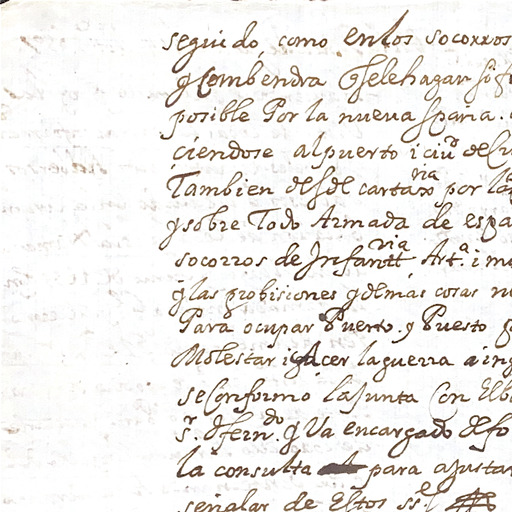 seguido como enlos socorros
q Combendra q sele hagan
posible Por la nueva spaña.
ciendose alpuerto i ciuᵈ de
Tambien desde carta por la
q sobre Todo Armada de espa
socorros de Infanᵗᵉʳⁱᵃ Artᵃ i mu
q las probisiones q demas cosas
Para ocupar Puerto y Puesto
Molestar i haCer la guerra a ing
se Conformo la Junta Con El
sʳ Dfernᵈᵒ q Va encargado
la consulta para ajustar
señalar de Estos